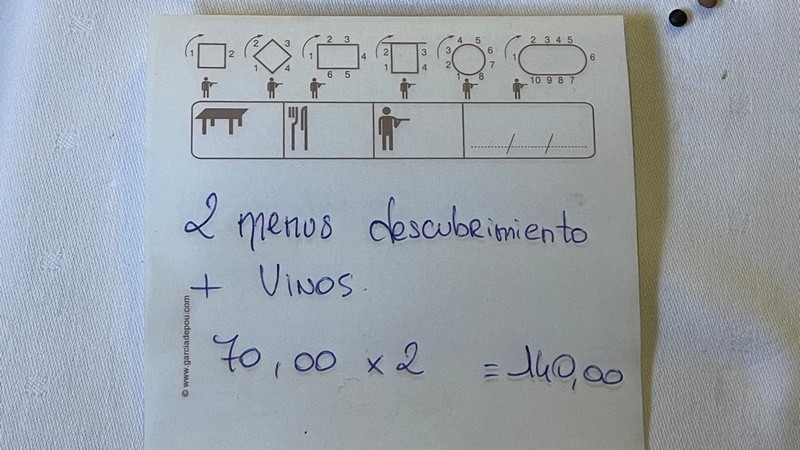 1 2
2 3
1 4
2 3
1 4
6 5
2 3
1 4
4 5
3 6
2 7
1 8
2 3 4 5
1 6
10 9 8 7
2 menus descubrimiento
+ Vinos.
70,00 x 2 = 140,00
© www.garciadepou.com